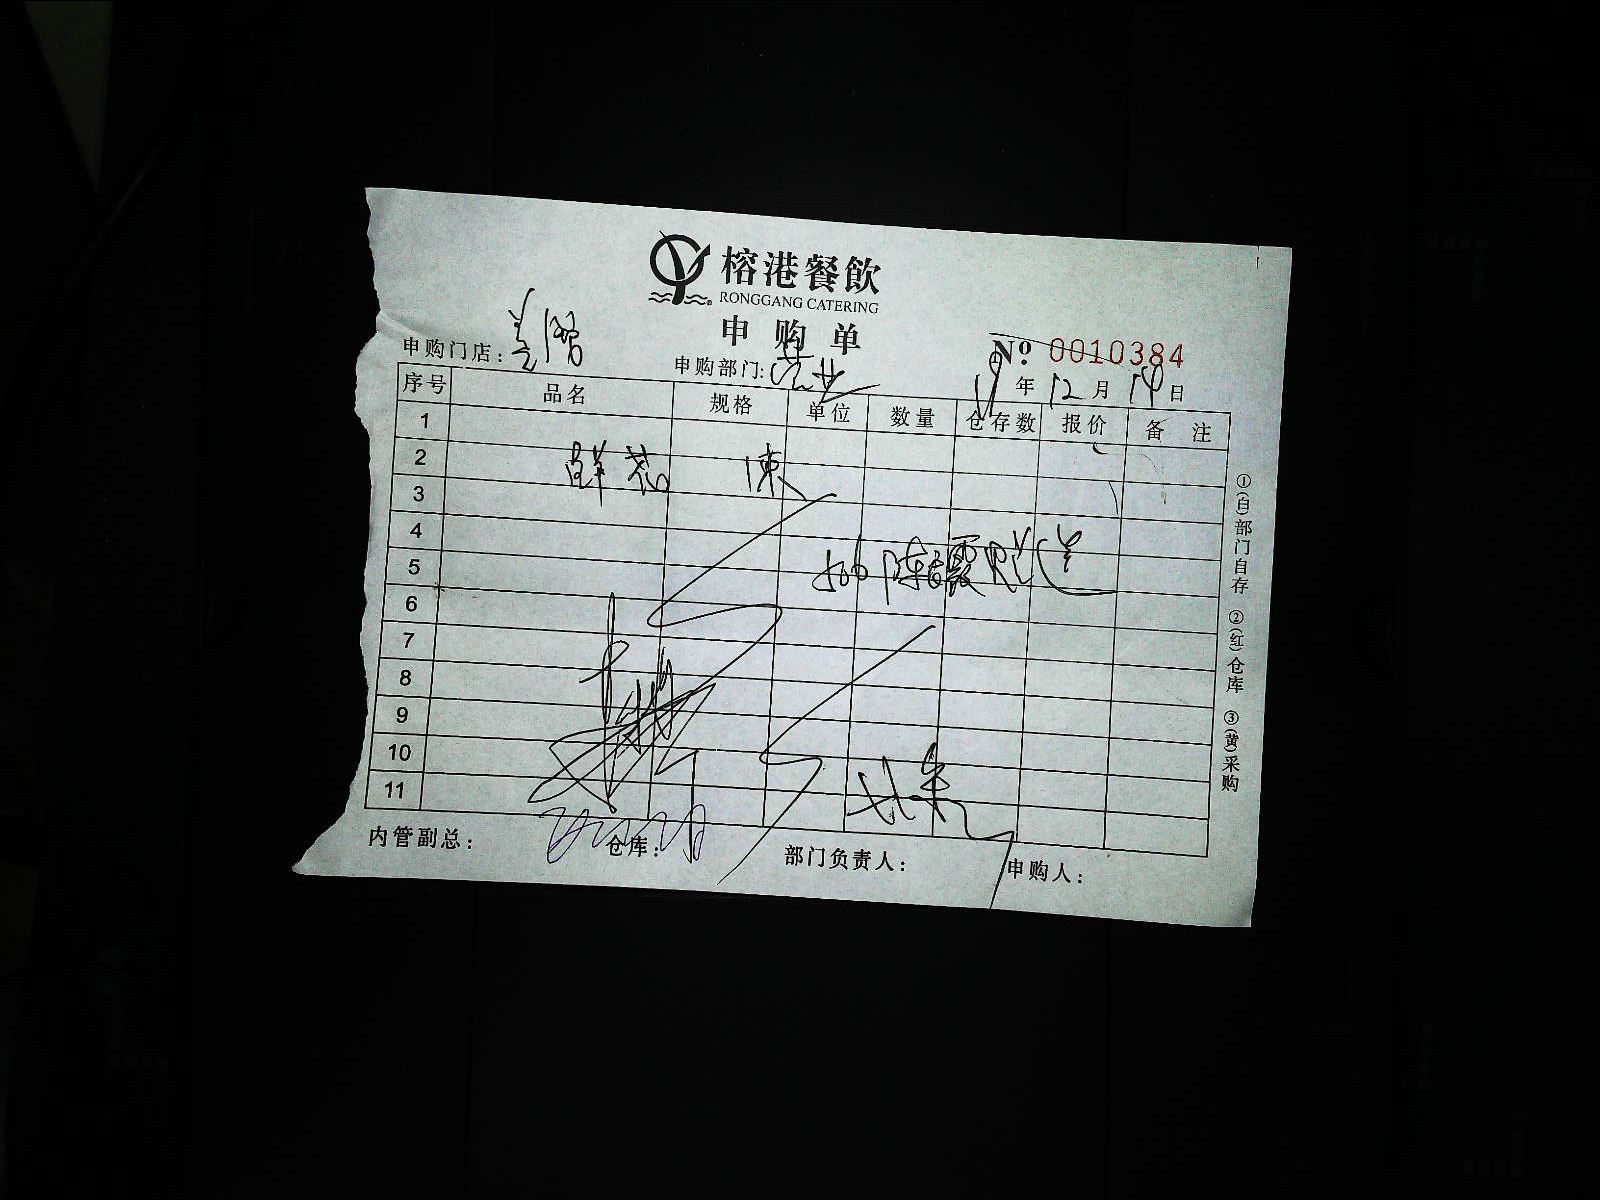 榕港餐飲
RONGGANG CATERING
申购单
No: 0010384
申购门店: 申购部门: 营业 年 12 月 14 日
序号 品名 规格 单位 数量 仓存数 报价 备注
1
2 鲜花 1束
3
4
5 赠送
6
7
8
9
10
11
内管副总: 仓库: 部门负责人: 申购人:
①(白)部门自存 ②(红)仓库 ③(黄)采购